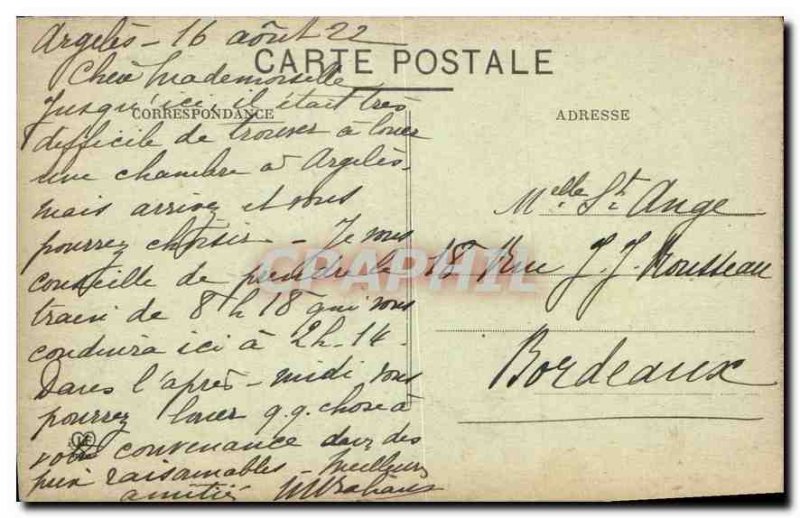 Argelès - 16 août 22
CARTE POSTALE
Chère Mademoiselle
CORRESPONDANCE
Jusqu'ici, il était très
difficile de trouver à louer
une chambre à Argelès.
mais arrivez et vous
pourrez choisir - Je vous
conseille de prendre le
train de 8 h 18 qui vous
conduira ici à 2h - 14.
Dans l'après-midi vous
pourrez louer q.q. chose à
votre convenance dans des
prix raisonnables - Meilleures
amitiés
ADRESSE
Melle St Ange
18 Rue J. J. Rousseau
Bordeaux
CPAPHIL